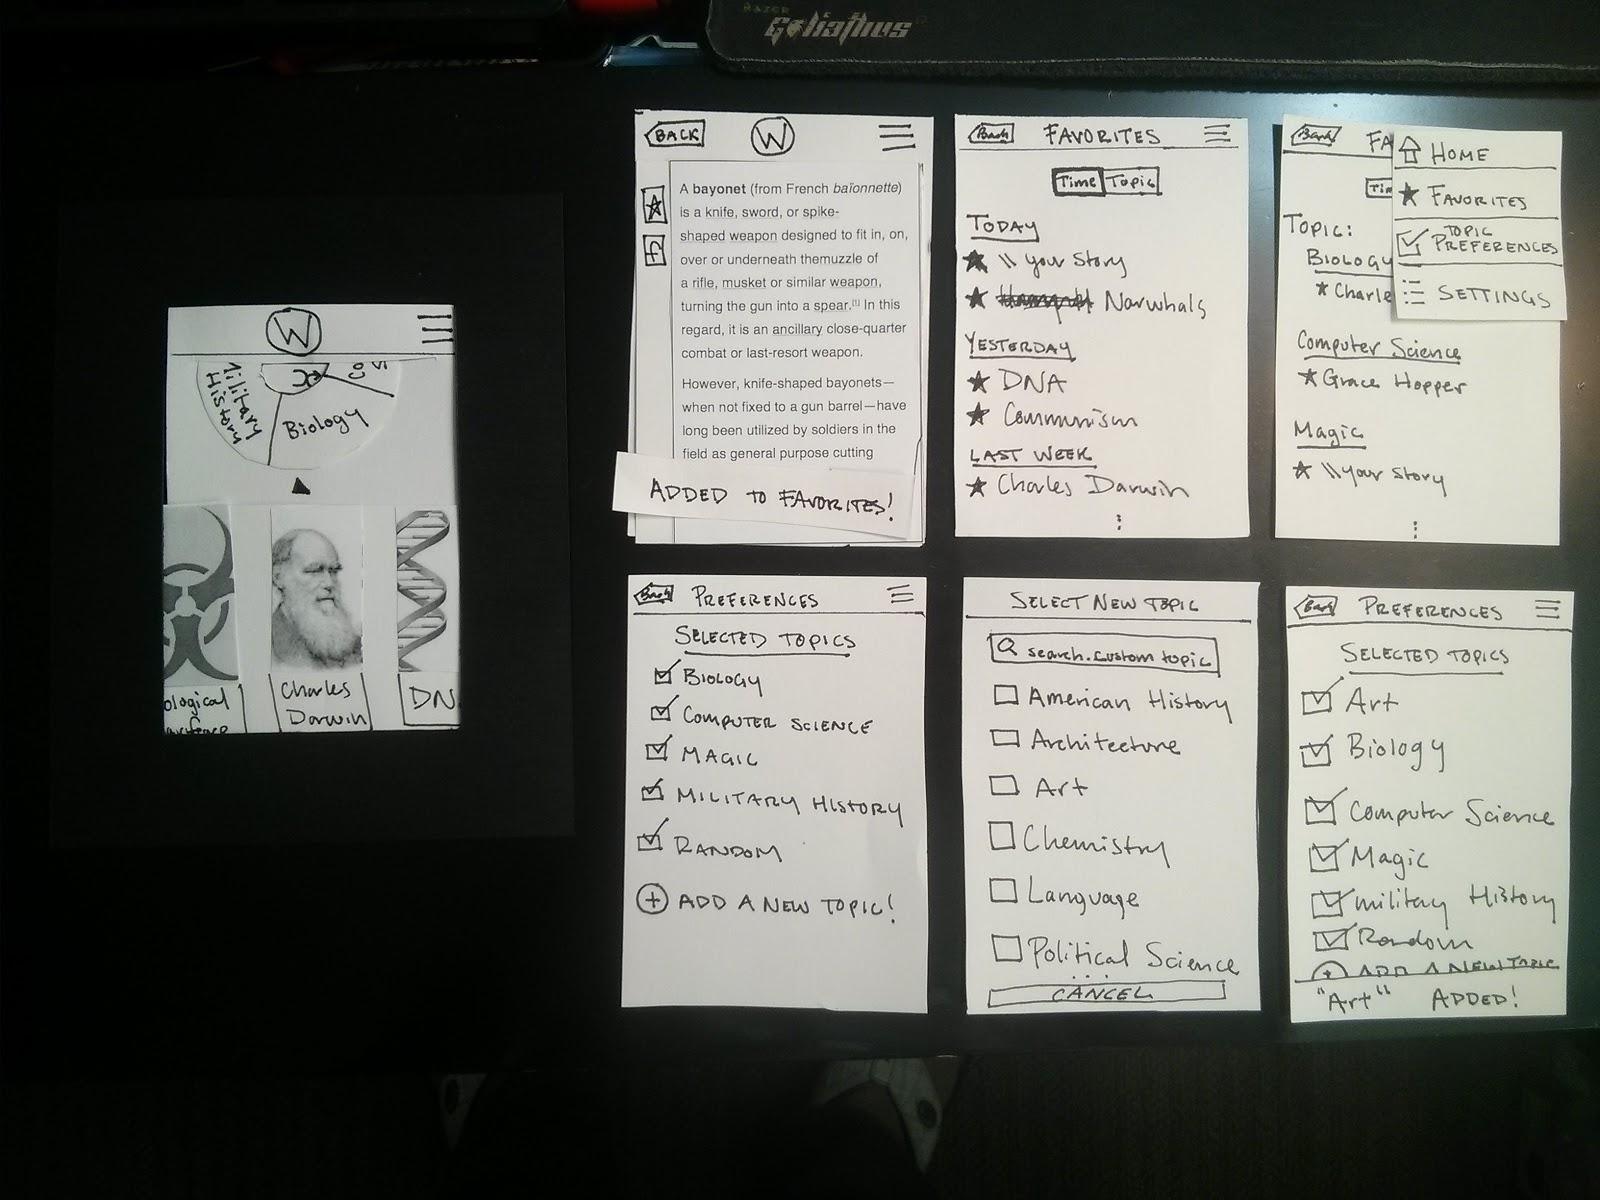 RAZER
Goliathus
W
Military
History
Biology
Co
S
ological
warfare
Charles
Darwin
DN
BACK
W
A bayonet (from French baïonnette)
is a knife, sword, or spike-
shaped weapon designed to fit in, on,
over or underneath themuzzle of
a rifle, musket or similar weapon,
turning the gun into a spear.[1] In this
regard, it is an ancillary close-quarter
combat or last-resort weapon.
However, knife-shaped bayonets—
when not fixed to a gun barrel—have
long been utilized by soldiers in the
field as general purpose cutting
f
ADDED TO FAVORITES!
Back FAVORITES
Time Topic
TODAY
\\ your Story
Narwhals
YESTERDAY
DNA
Communism
LAST WEEK
Charles Darwin
Back FA
Tim
HOME
FAVORITES
TOPIC
PREFERENCES
SETTINGS
Topic:
Biology
Charle
Computer Science
Grace Hopper
Magic
\\ your Story
Back PREFERENCES
SELECTED TOPICS
BIOLOGY
COMPUTER SCIENCE
MAGIC
MILITARY HISTORY
RANDOM
+ ADD A NEW TOPIC!
SELECT NEW TOPIC
search custom topic
American History
Architecture
Art
Chemistry
Language
Political Science
CANCEL
Back PREFERENCES
SELECTED TOPICS
Art
Biology
Computer Science
Magic
military History
Random
+ ADD A NEW TOPIC
"Art" ADDED!